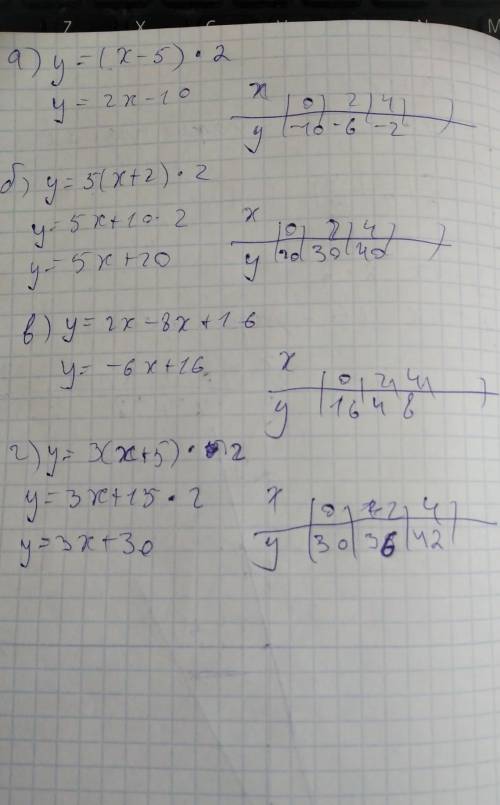 а) y = (x-5) • 2
y = 2x-10
x 0 2 4
y -10 -6 -2
б) y = 5(x+2) • 2
y = 5x+10 • 2
y = 5x+20
x 0 2 4
y 20 30 40
в) y = 2x-8x+16
y = -6x+16
x 0 2 4
y 16 4 8
г) y = 3(x+5) • 2
y = 3x+15 • 2
y = 3x+30
x 0 2 4
y 30 36 42